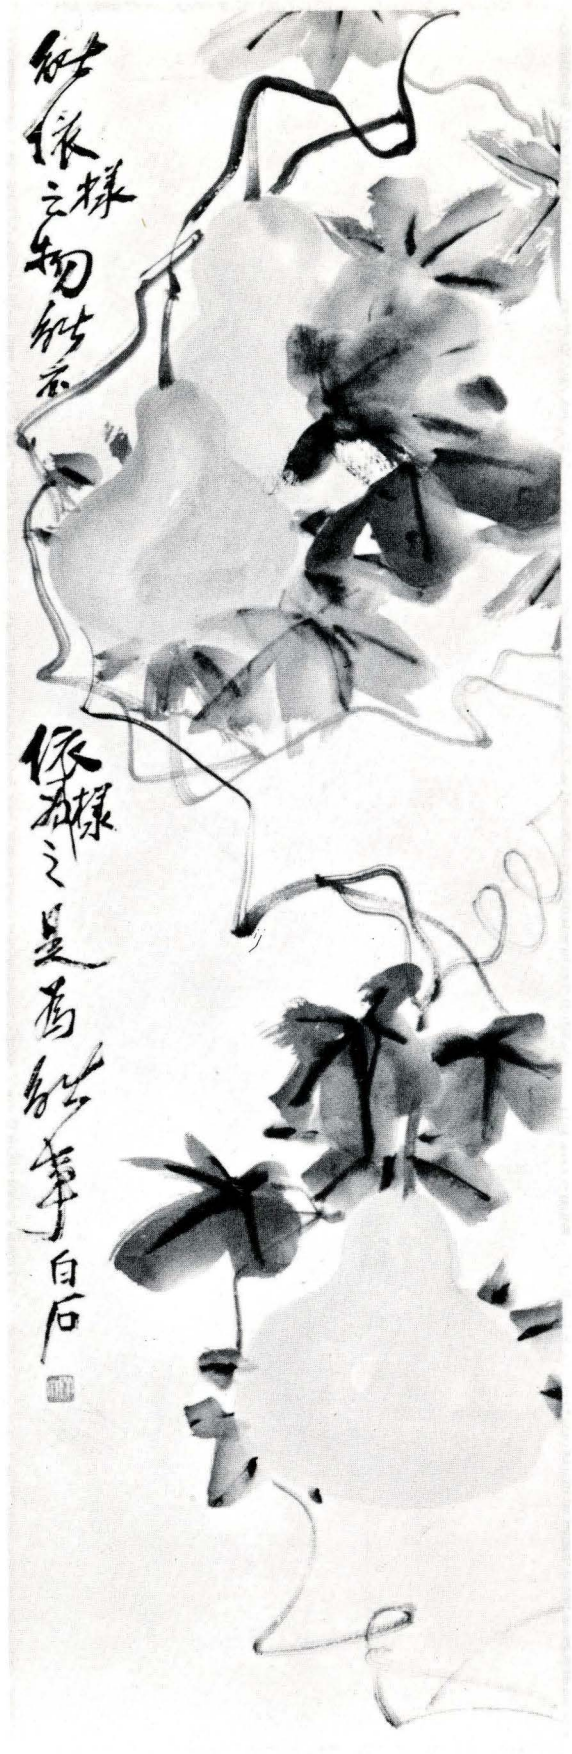 能依樣之物能不
依樣為之是為能事白石